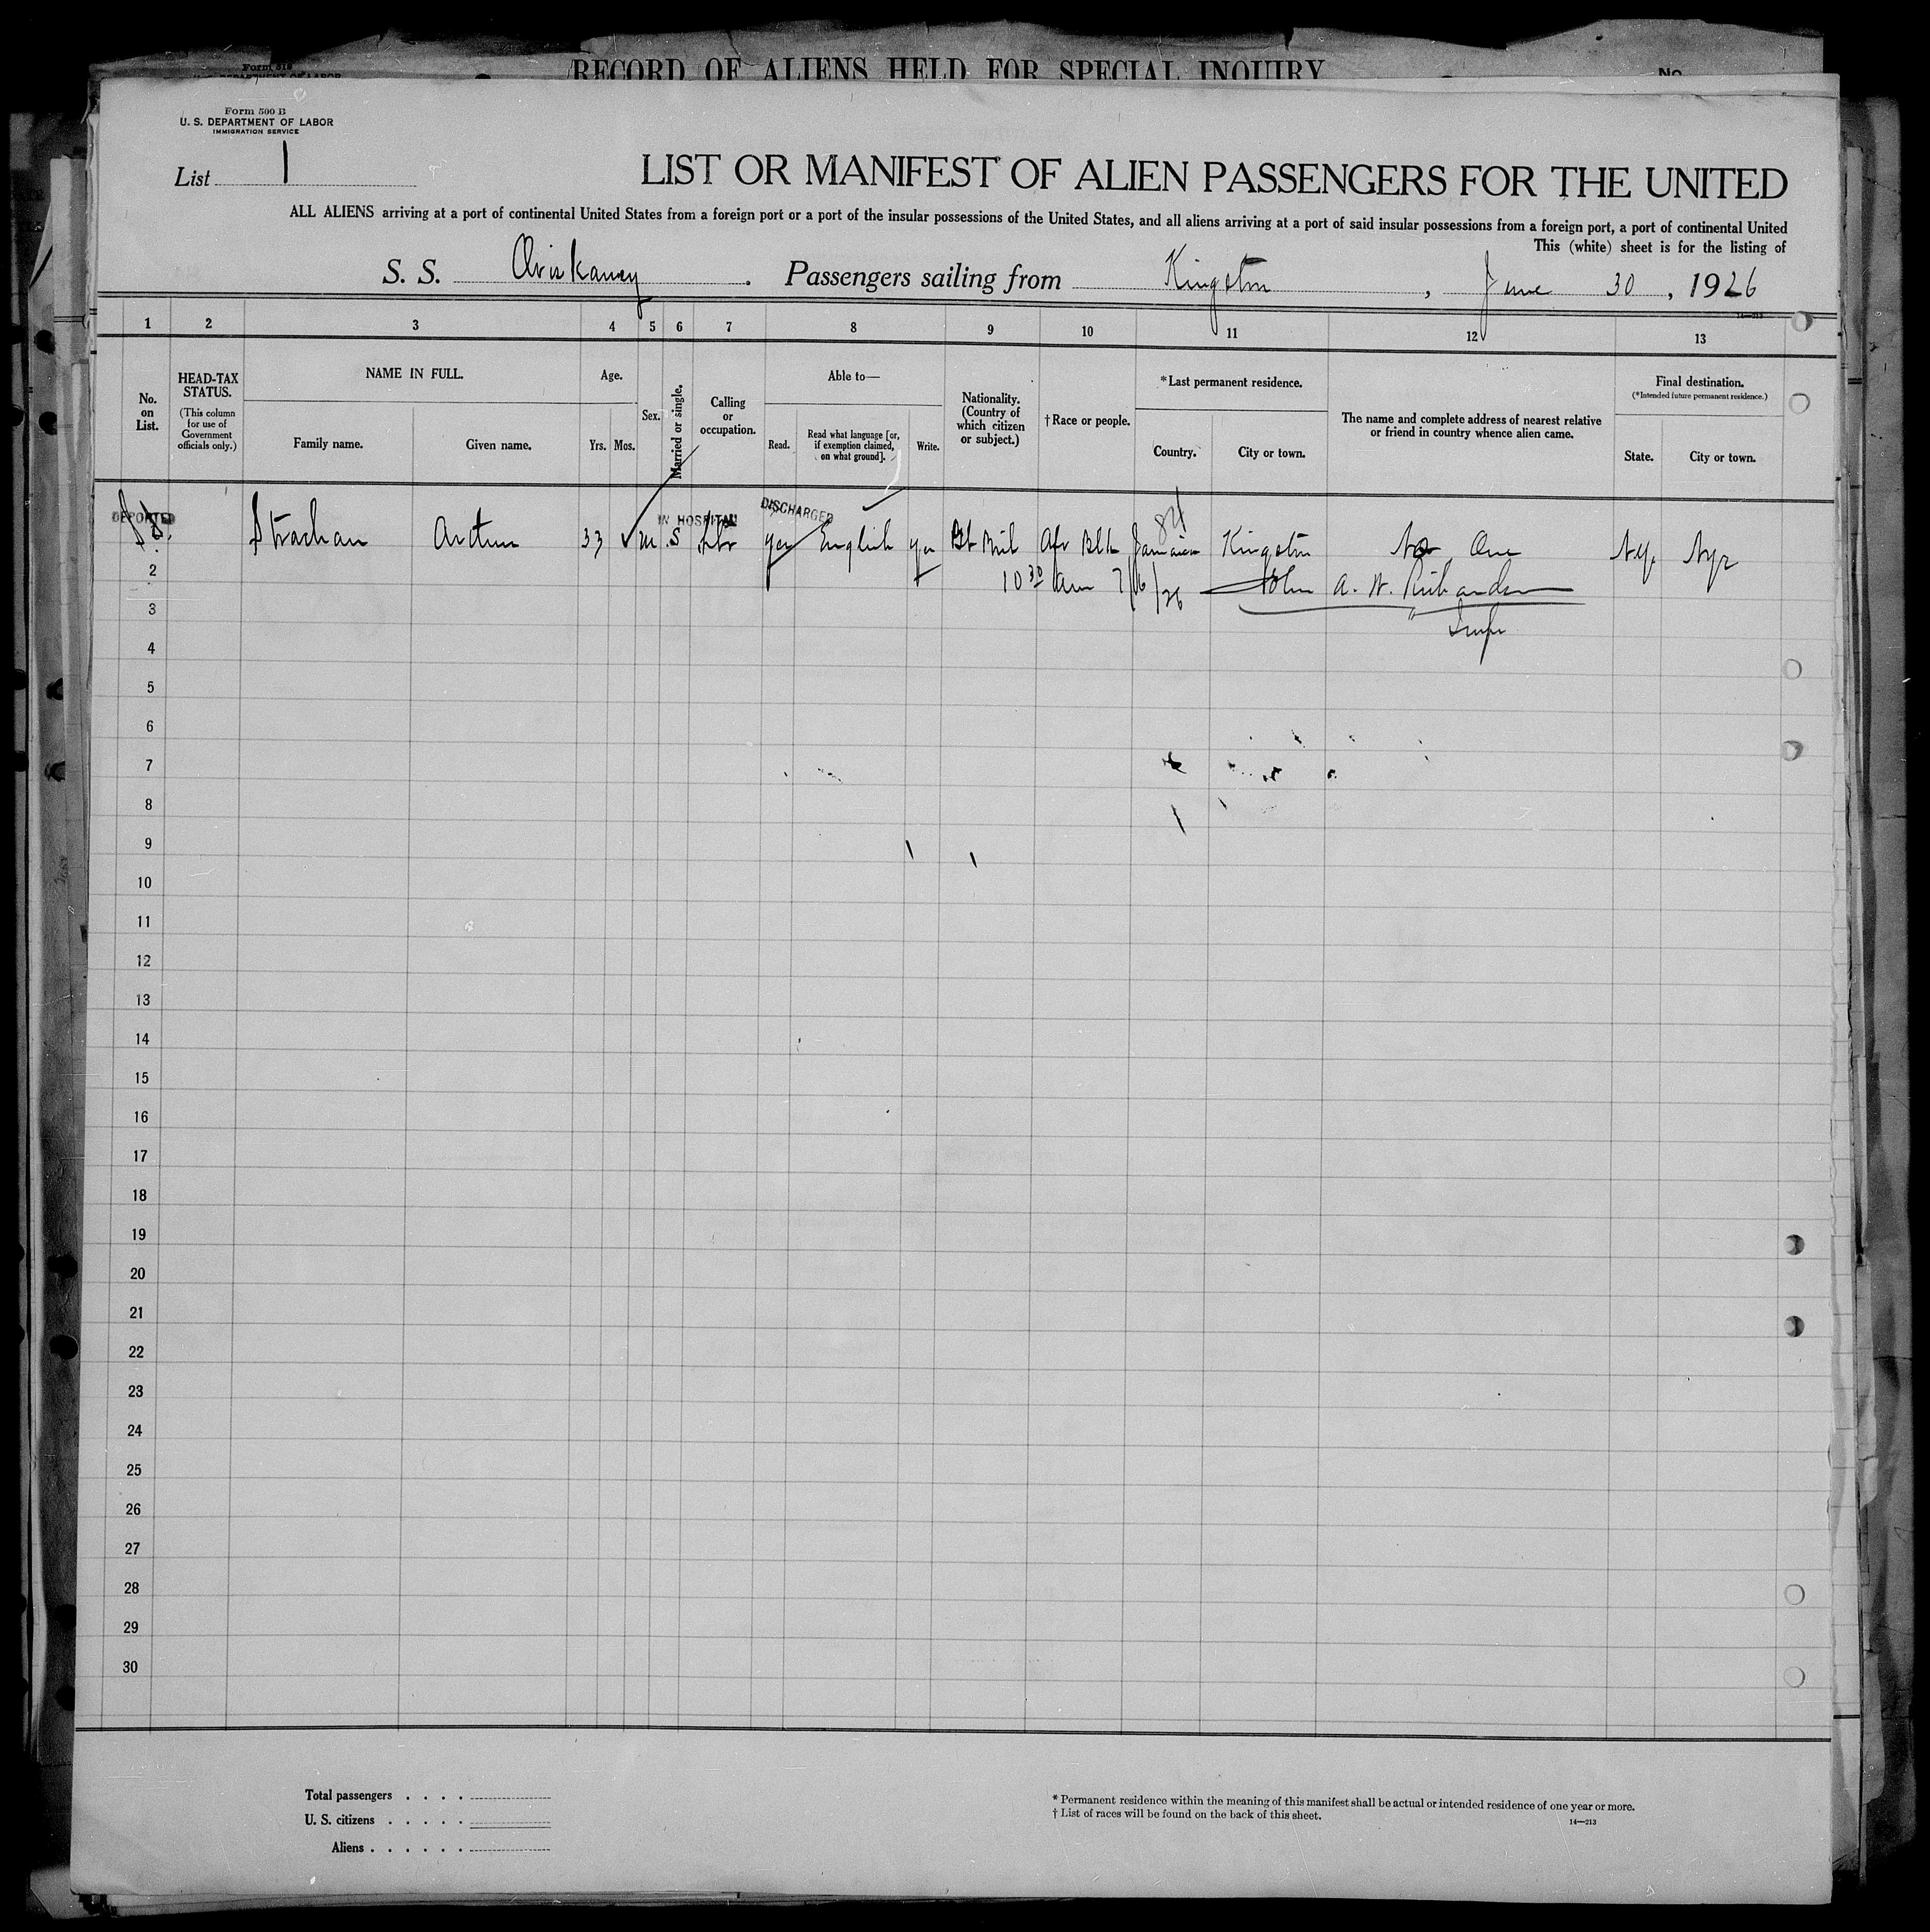 Form 319
U. S. DEPARTMENT OF LABOR
RECORD OF ALIENS HELD FOR SPECIAL INQUIRY
No.
Form 500 B
U. S. DEPARTMENT OF LABOR
IMMIGRATION SERVICE
List 1
LIST OR MANIFEST OF ALIEN PASSENGERS FOR THE UNITED
ALL ALIENS arriving at a port of continental United States from a foreign port or a port of the insular possessions of the United States, and all aliens arriving at a port of said insular possessions from a foreign port, a port of continental United
This (white) sheet is for the listing of
S. S. Oriskaney. Passengers sailing from Kingston, June 30, 1926
14—213
1 2 3 4 5 6 7 8 9 10 11 12 13
No. on List.
HEAD-TAX STATUS.
(This column for use of Government officials only.)
NAME IN FULL.
Family name.
Given name.
Age.
Yrs. Mos.
Sex.
Married or single.
Calling or occupation.
Able to—
Read.
Read what language [or, if exemption claimed, on what ground].
Write.
Nationality. (Country of which citizen or subject.)
†Race or people.
*Last permanent residence.
Country.
City or town.
The name and complete address of nearest relative or friend in country whence alien came.
Final destination.
(*Intended future permanent residence.)
State.
City or town.
DEPORTED
IN HOSPITAL
DISCHARGED
84
Strachan Arthur 33 m S yes English yes Gt Brit Afr Blk Jamaica Kingston No One Ny. Nyc
2
10 30 am 7/6/26 John A. W. Richardson
3
Insp
4
5
6
7
8
9
10
11
12
13
14
15
16
17
18
19
20
21
22
23
24
25
26
27
28
29
30
Total passengers . . . .
U. S. citizens . . . . .
Aliens . . . . . .
* Permanent residence within the meaning of this manifest shall be actual or intended residence of one year or more.
† List of races will be found on the back of this sheet.
14—213